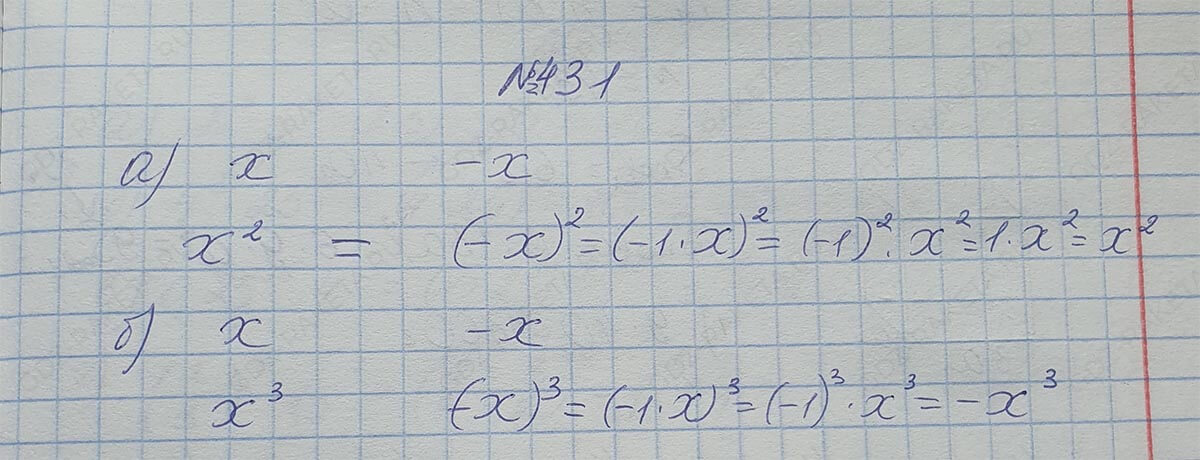 №431
а) x -x
x² = (-x)² = (-1·x)² = (-1)²·x² = 1·x² = x²
б) x -x
x³ (-x)³ = (-1·x)³ = (-1)³·x³ = -x³